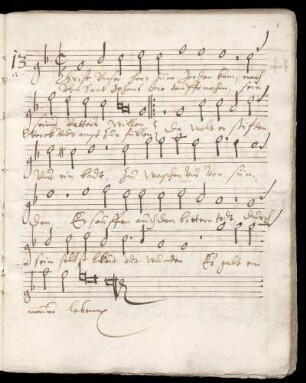 13
Christ Unser Herr zum Jordan kam, nach
Von Sant Johans die Tauffe nahm, sein
seines Vatters willen / Da wolt er stifften
Werck und ampt zur füllen
Uns ein badt, zu waschen uns von sün-
den Ersauffen auch den bittern todt durch
sein selbst blut und wunden Es galt ein
neues leben